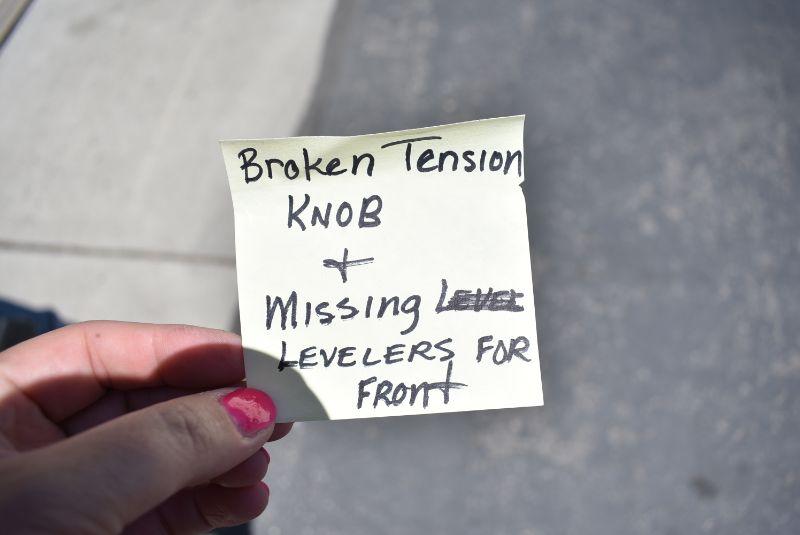 Broken Tension
KNOB
+
Missing LEVEL
LEVELERS FOR
FRONT